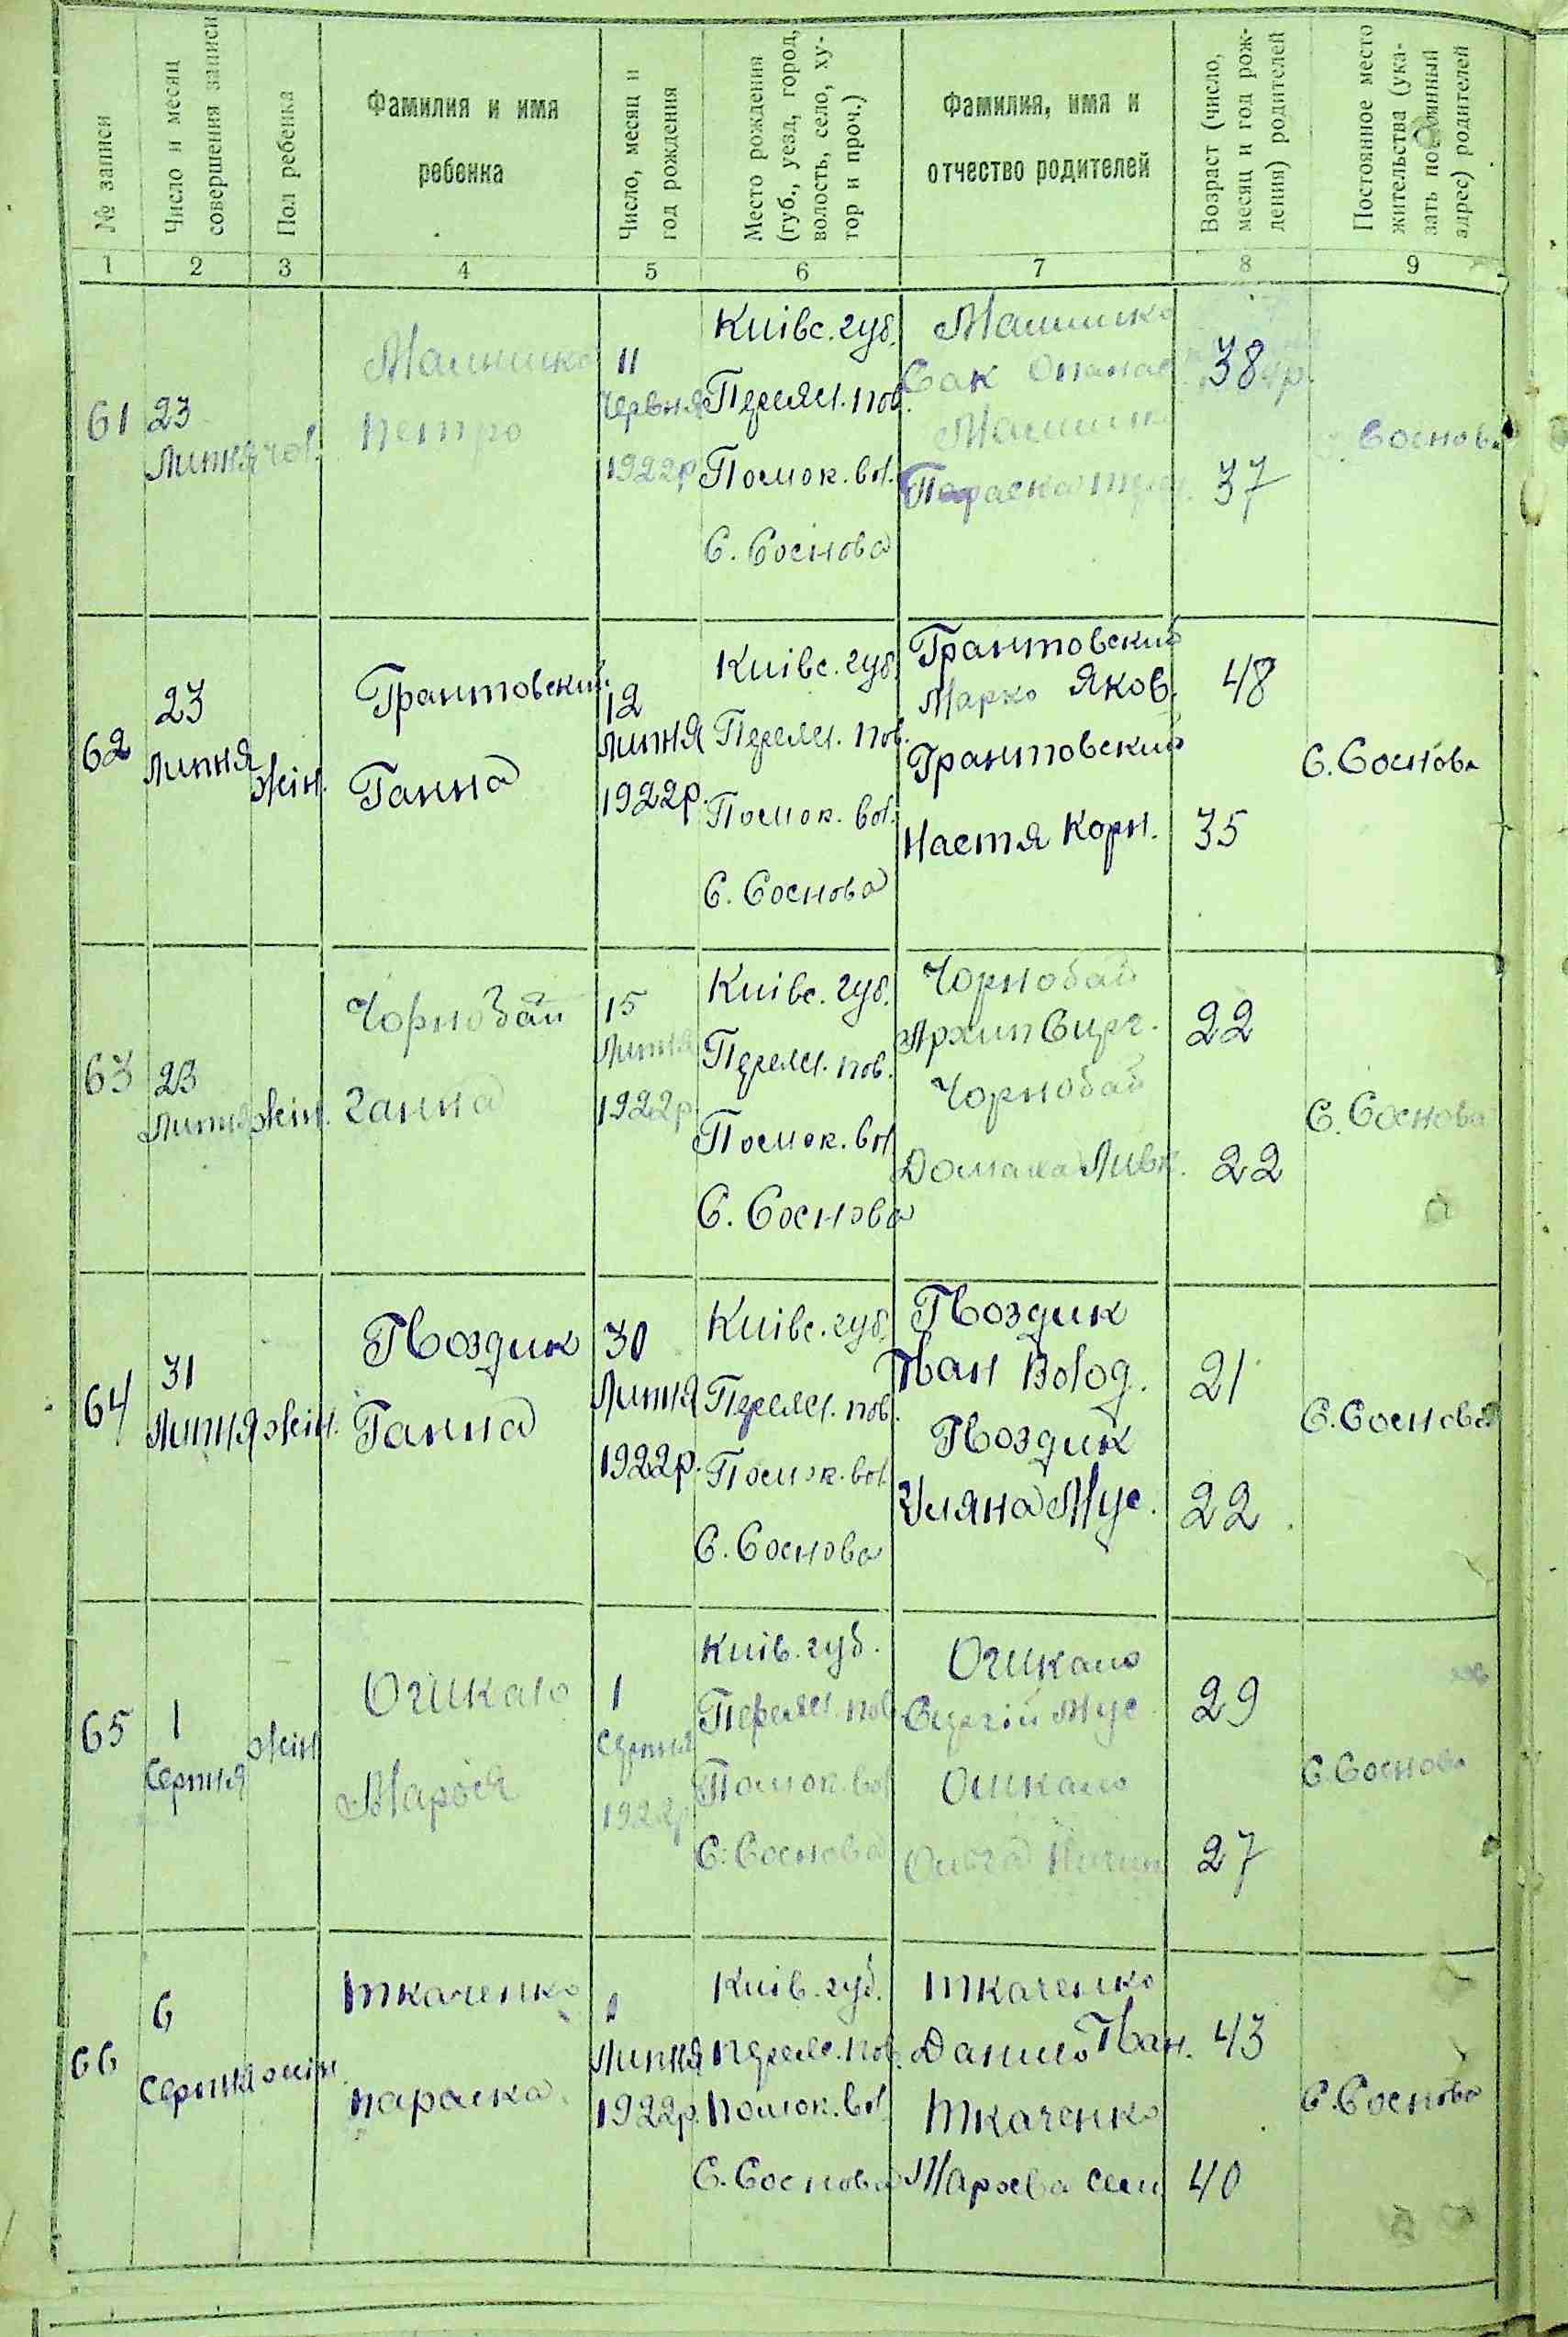 № записи
Число и месяц
совершения записи
Пол ребенка
Фамилия и имя
ребенка
Число, месяц и
год рождения
Место рождения
(губ., уезд, город,
волость, село, ху-
тор и проч.)
Фамилия, имя и
отчество родителей
Возраст (число,
месяц и год рож-
дения) родителей
Постоянное место
жительства (ука-
зать постоянный
адрес) родителей
1 2 3 4 5 6 7 8 9
61
23
Липня
чол.
Петро
11
Червня
1922р
Київс. губ.
Переясл. пов.
Помок. вол.
С. Соснова
Сак Опанас
38
Параска
37
Соснова
62
23
Липня
жін.
Грантовский
Ганна
12
Липня
1922р.
Київс. губ.
Переясл. пов.
Помок. вол.
С. Соснова
Грантовский
Марко Яков.
Грантовский
Настя Корн.
48
35
С. Соснова
63
23
Липня
жін.
Чорнобай
Ганна
15
Липня
1922р
Київс. губ.
Переясл. пов.
Помок. вол
С. Соснова
Чорнобай
Архип Серг.
Чорнобай
Домаха
22
22
С. Соснова
64
31
Липня
жін.
Гвоздик
Ганна
30
Липня
1922р.
Київс. губ.
Переясл. пов.
Помок. вол.
С. Соснова
Гвоздик
Іван Волод.
Гвоздик
Уляна Мус.
21
22
С. Соснова
65
1
Серпня
жін
Очкало
Марося
1
Серпня
1922р
Київ. губ.
Переясл. пов
Помок. вол
С. Соснова
Сергій Мус.
Ольга
29
27
С. Соснова
66
6
Серпня
жін.
Ткаченко
Параска
Липня
1922р.
Київ. губ.
Переяс. пов.
Помок. вол
С. Соснова
Ткаченко
Данило Іван.
Ткаченко
Сем
43
40
С. Соснова